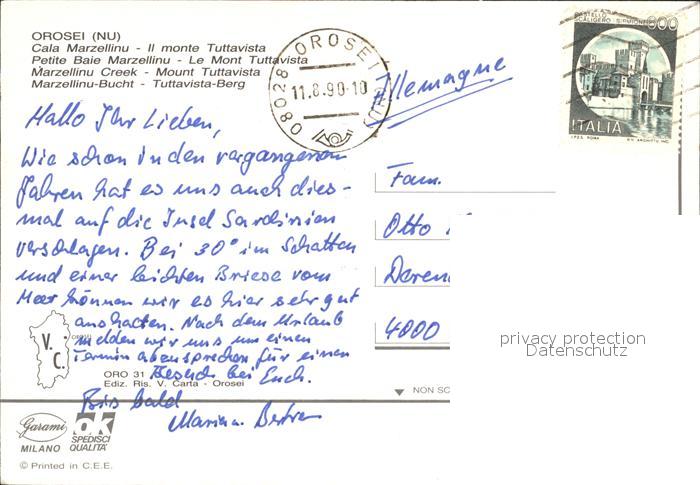 OROSEI (NU)
Cala Marzellinu - Il monte Tuttavista
Petite Baie Marzellinu - Le Mont Tuttavista
Marzellinu Creek - Mount Tuttavista
Marzellinu-Bucht - Tuttavista-Berg
08028 OROSEI (NU)
11.8.90-10
CASTELLO SCALIGERO SIRMIONE
ITALIA
I.P.Z.S. ROMA
Allemagne
Hallo Ihr Lieben,
Wie schon in den vergangenen
Jahren hat es uns auch dies-
mal auf die Insel Sardinien
verschlagen. Bei 30° im Schatten
und einer leichten Briese vom
Meer können wir es hier sehr gut
aushalten. Nach dem Urlaub
melden wir uns um einen
Termin abzusprechen für einen
Besuch bei Euch.
Bis bald
Fam.
Otto
Deren
4000
privacy protection
Datenschutz
V.
C.
ORO 31
Ediz. Ris. V. Carta - Orosei
NON SC
Garami
MILANO
ok
SPEDISCI
QUALITÀ
© Printed in C.E.E.